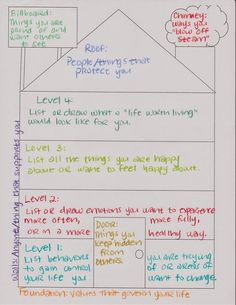 Billboard:
Things you are
proud of and
want others
to see
Chimney:
ways you
"blow off
steam"
ROOF:
People/things that
protect you
Level 4:
List or draw what a "life worth living"
would look like for you.
Level 3:
List all the things you are happy
about or want to feel happy about.
Level 2:
List or draw emotions you want to experience
more often, more fully,
or in a more healthy way.
Door:
Things you
keep hidden
from
others.
Level 1:
List behaviors you are trying
to gain control of or areas of
your life you want to change.
Walls: Anyone/thing that supports you
Foundation: Values that govern your life